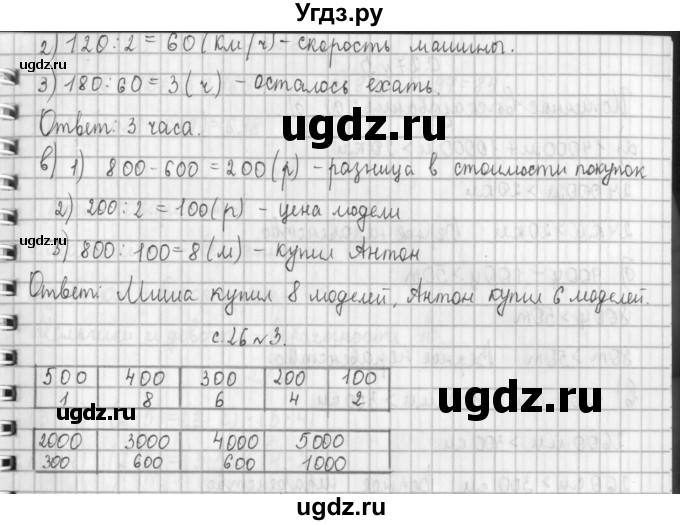 Угдз.ру
2) 120:2=60(км/ч)-скорость машины.
3) 180:60=3(ч) - осталось ехать.
Ответ: 3 часа.
в) 1) 800-600=200(р) -разница в стоимости покупок
2) 200:2=100(р) - цена модели
3) 800:100=8(м) - купил Антон
Ответ: Миша купил 8 моделей, Антон купил 6 моделей.
с.26 №3.
500 400 300 200 100
1 8 6 4 2
2000 3000 4000 5000
300 600 600 1000
ugdz.ru
ugdz.ru
ugdz.ru
ugdz.ru
ugdz.ru
ugdz.ru
ugdz.ru
ugdz.ru